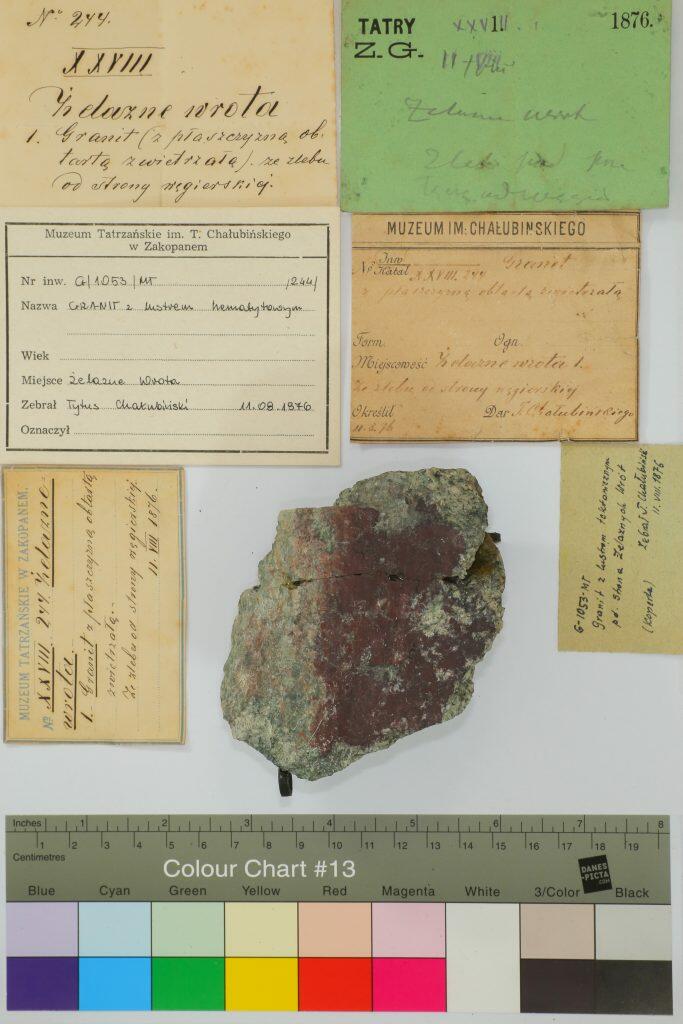 No 244.
XXVIII
Żelazne wrota
1. Granit (z płaszczyzną ob-
tartą zwietrzałą). ze żlebu
od strony węgierskiej.
TATRY XXVIII. 1876.
Z. G.
Żelazne wrota
Żleb pod
MUZEUM IM: CHAŁUBIŃSKIEGO
No Inw. Katal. XXVIII. 244 Granit
z płaszczyzną obtartą zwietrzałą
Form. Ogn.
Miejscowość Żelazne wrota 1.
Ze żlebu od strony węgierskiej
Określił Dar T. Chałubińskiego
Muzeum Tatrzańskie im. T. Chałubińskiego
w Zakopanem
Nr inw. G/1053/MT /244/
Nazwa GRANIT z lustrem hematytowym
Wiek
Miejsce Żelazne Wrota
Zebrał Tytus Chałubiński 11.08.1876
Oznaczył
MUZEUM TATRZAŃSKIE W ZAKOPANEM.
No XXVIII. 244. Żelazne
wrota.
1. Granit z płaszczyzną obtartą
zwietrzałą.
Ze żlebu od strony węgierskiej.
11. VIII 1876.
G-1053-MT
Granit z lustrem tektonicznym
pd. strona Żelaznych Wrót
(Koperta) Zebrał T. Chałubiński
11. VIII. 1876
Inches 1 2 3 4 5 6 7 8
Centimetres 1 2 3 4 5 6 7 8 9 10 11 12 13 14 15 16 17 18 19
Colour Chart #13
DANES-PICTA.COM
Blue Cyan Green Yellow Red Magenta White 3/Color Black